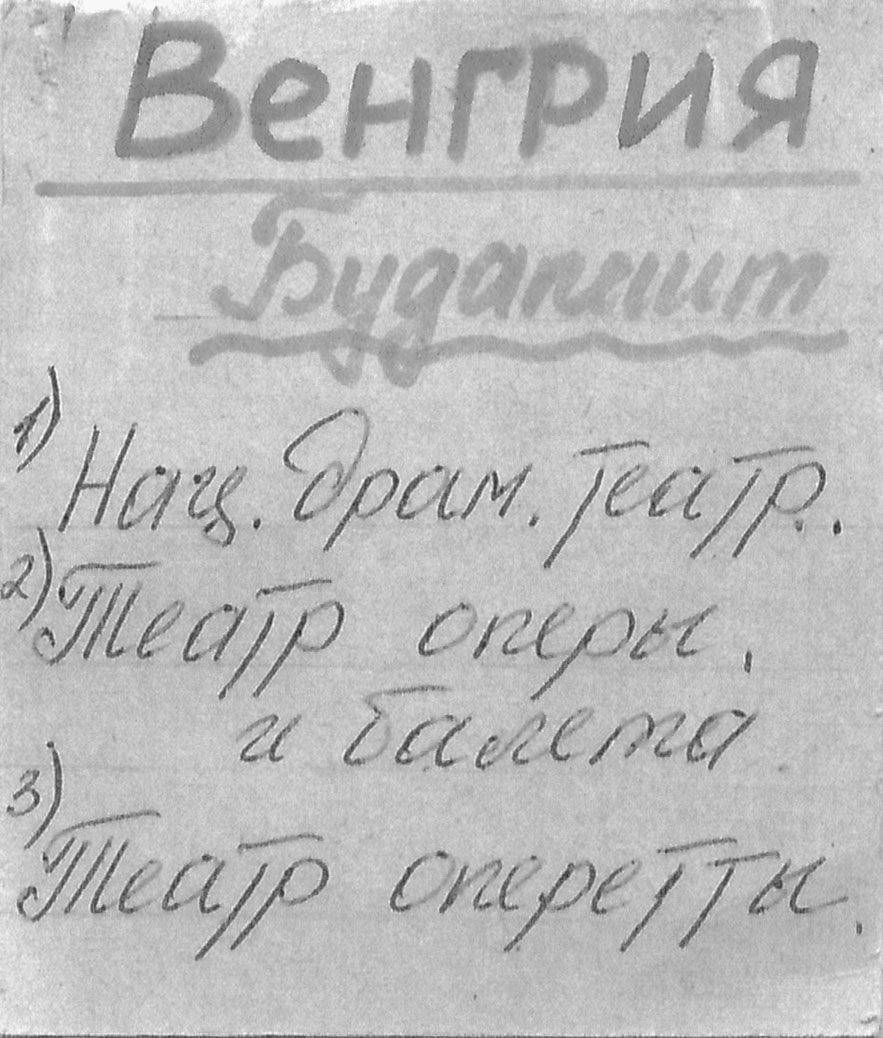 Венгрия
Будапешт
1) Нац. драм. театр.
2) Театр оперы
и балета
3) Театр оперетты.